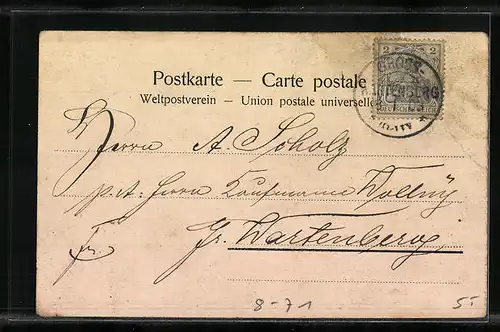 2 2
GROSS-
WARTENBERG
Postkarte — Carte postale
Weltpostverein — Union postale universelle
Herrn A. Scholz
p. A. Herrn Kaufmann
Fr. Gr. Wartenberg
8-71 5-